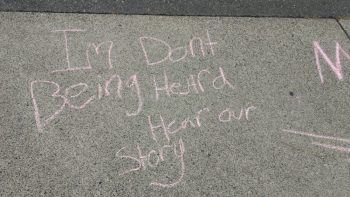 Im Dont
Being Heard
Hear our
Story
M